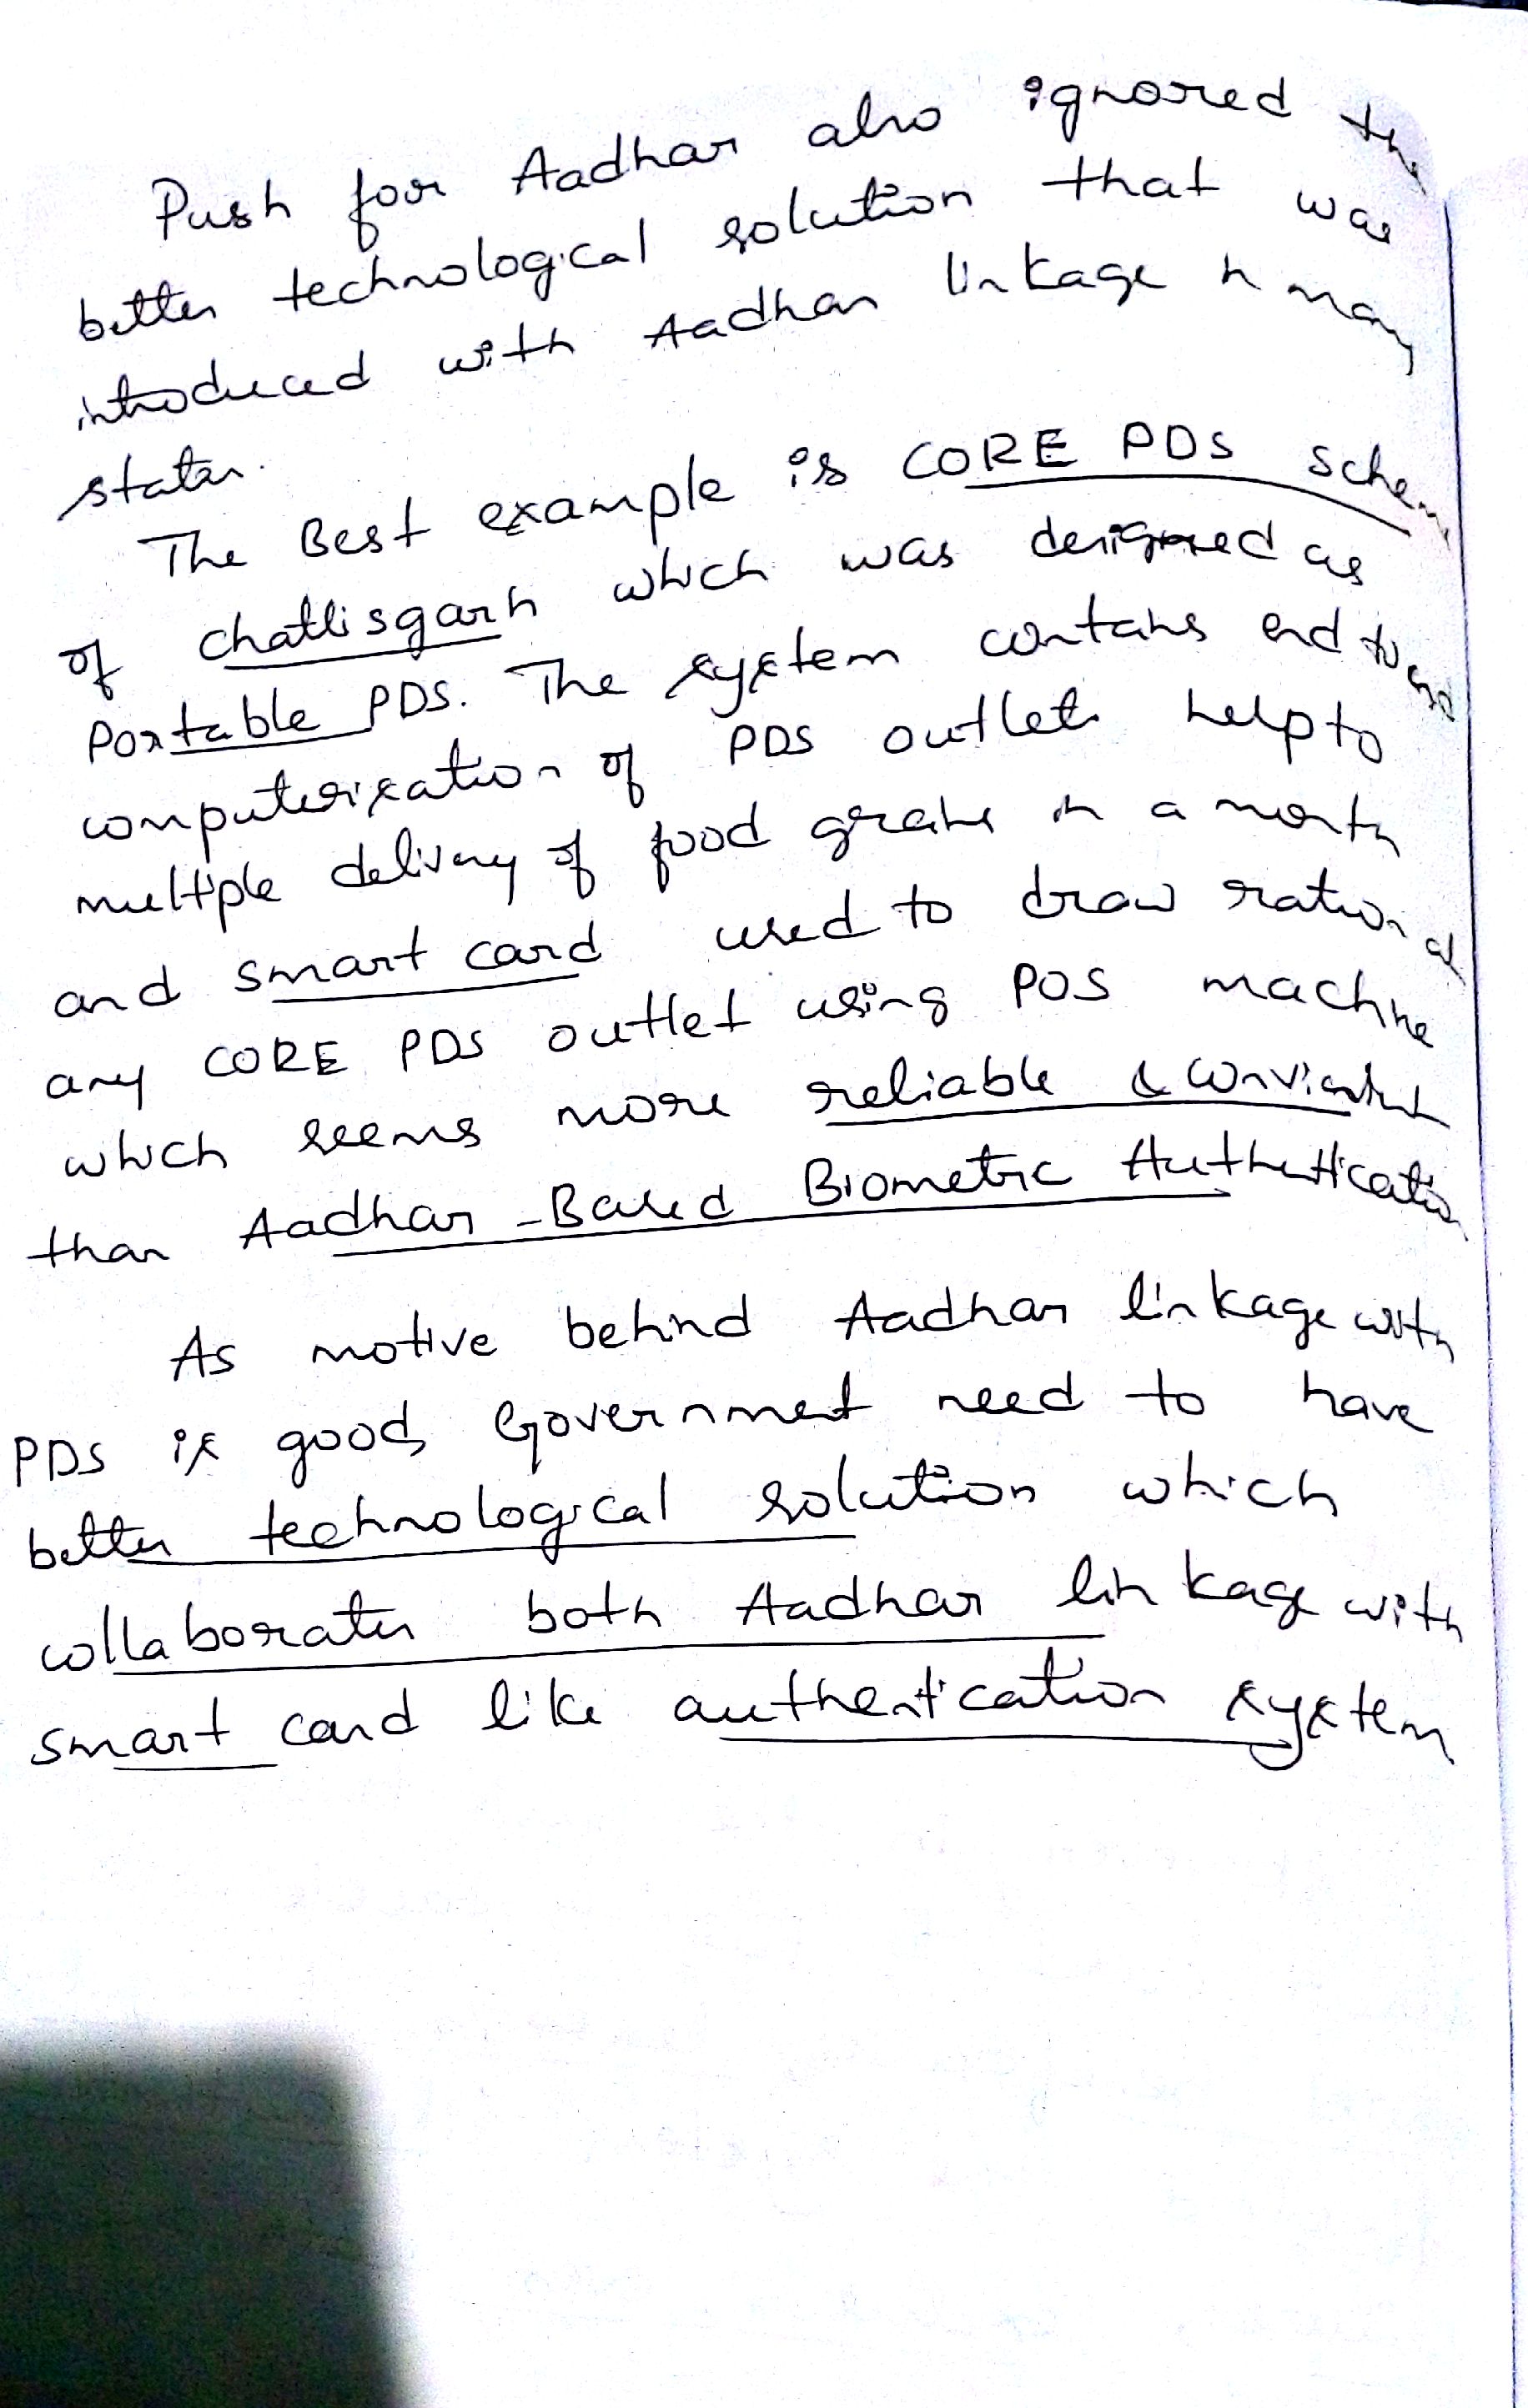 Push for Aadhar also ignored the
better technological solution that was
introduced with Aadhar linkage in many
states.
The Best example is CORE PDS scheme
of chattisgarh which was designed as
Portable PDS. The system contains end to end
computerization of PDS outlets help to
multiple delivery of food grains in a month
and smart card used to draw ration at
any CORE PDS outlet using POS machine
which seems more reliable & convient
than Aadhar-Based Biometric Authentication
As motive behind Aadhar linkage with
PDS is good, Government need to have
better technological solution which
collaborates both Aadhar linkage with
smart card like authentication system